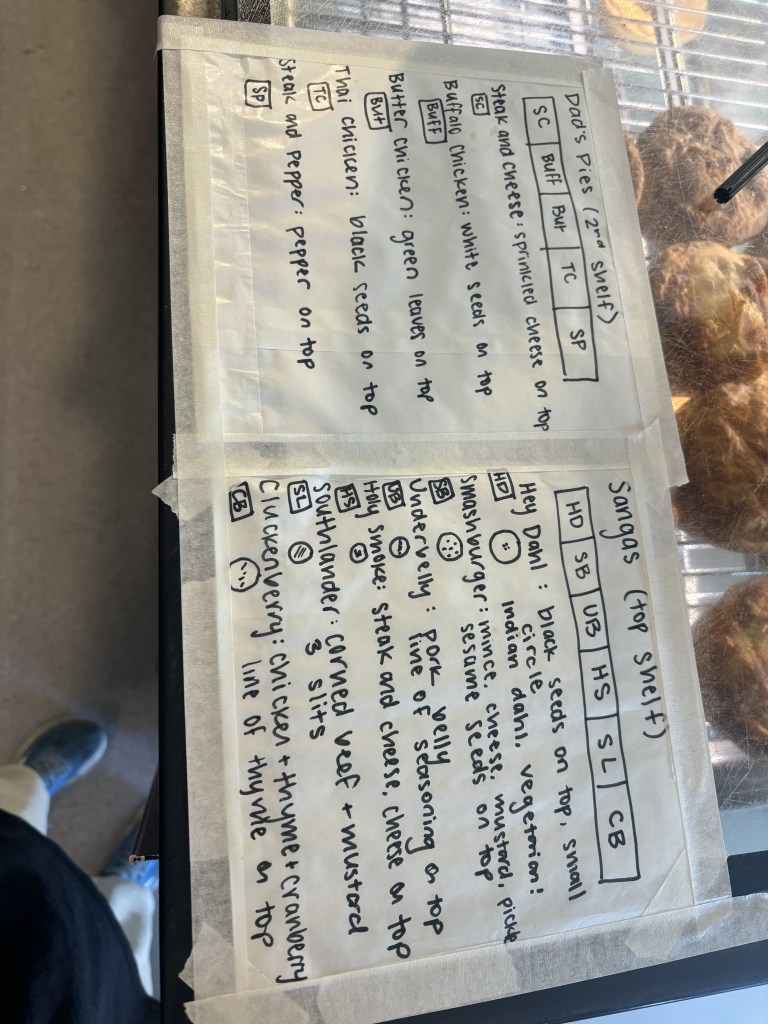 Dad's Pies (2nd shelf)
SC Buff But TC SP
Steak and cheese: sprinkled cheese on top
SC
Buffalo Chicken: white seeds on top
Buff
Butter chicken: green leaves on top
But
Thai chicken: black seeds on top
TC
Steak and Pepper: pepper on top
SP
Sangas (top shelf)
HD SB UB HS SL CB
Hey Dahl: black seeds on top, small
circle
HD
Indian dahl, vegetarian:
Smashburger: mince, cheese, mustard, pickle
SB
sesame seeds on top
Underbelly: pork belly
UB
line of seasoning on top
Holy Smoke: steak and cheese, cheese on top
HS
Southlander: corned beef + mustard
SL
3 slits
Cluckenberry: chicken + thyme + cranberry
CB
line of thyme on top